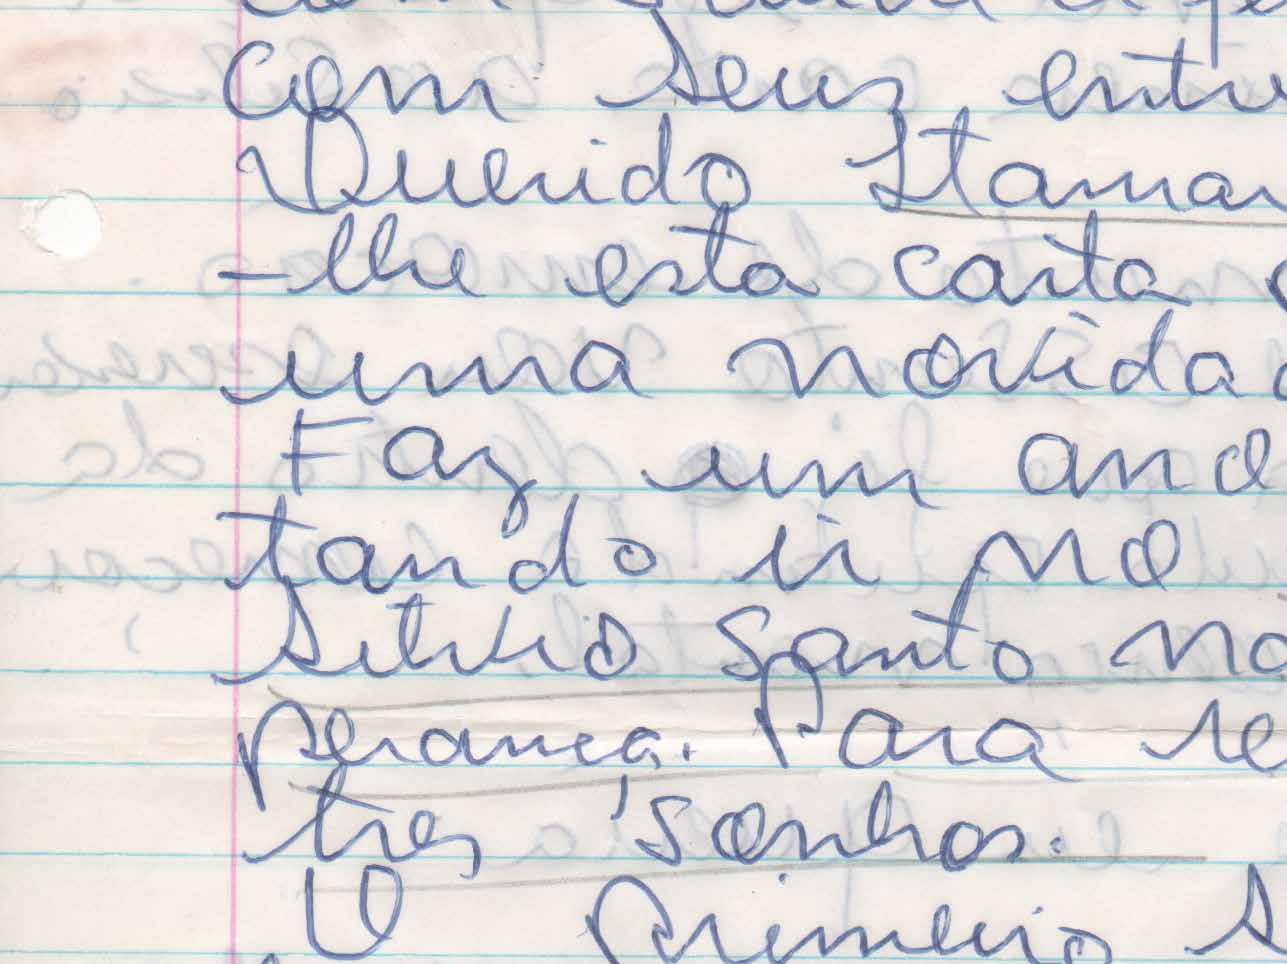 com
com seus entre
Querido Itamar
-lhe esta carta
uma novidad
Faz um ano
tando ir no
Silvio Santo na
perança. Para re
três sonhos.
O primeiro s